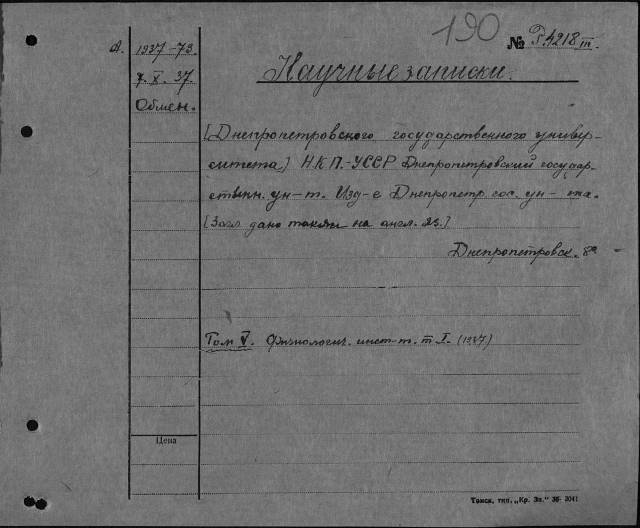 190
№ Г.4218 III.
А. 1937-73.
7. X. 37.
Обмен.
Научные записки.
[Днепропетровского государственного универ-
ситета] Н.К.П.-УССР Днепропетровский государ-
ственн. ун-т. Изд-е Днепропетр. гос. ун-та.
[Загл. дано также на англ. яз.]
Днепропетровск. 8°
Том V. Физиологич. инст-т. т I. (1937)
Цена
Томск, тип. „Кр. Зн." 36- 3041